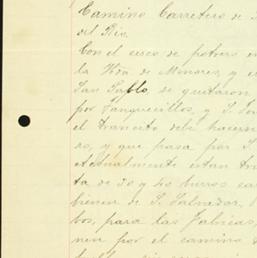 Camino Carretero de
del Rio.
Con el cerco de potrero en
la Hda de Menores, y
San Pablo, se quitaron
por Tanquecillos, y S.
el transito debe hacerse
ro, y que pasa por S.
Actualmente estan
ta de 30 y 40 burros car
bienen de S. Salvador.
bos, para las Fabricas,
nen por el camino